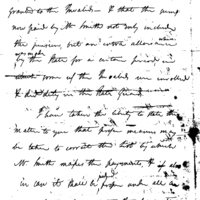 granted to the Invalids & that the sum
now paid by Mr Smith not only includes
the pension but an extra allowance
by the State for a certain period in
which some of the Invalids were enrolled
& did duty in the State Guard
I have taken the liberty to state this
matter to you that proper measures may
be taken to correct the list by which
Mr Smith makes the payments, & also
in case it shall be proper and all